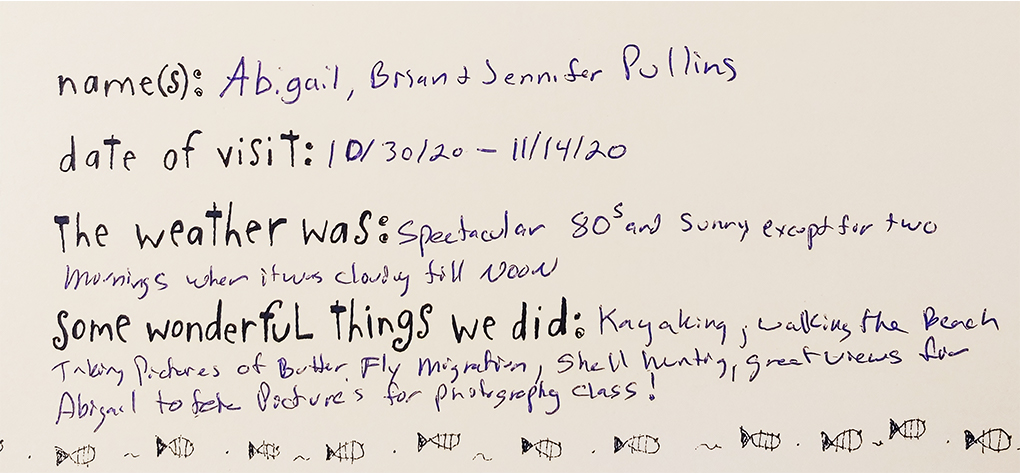 name(s): Abigail, Brian & Jennifer Pullins
date of visit: 10/30/20 - 11/14/20
The weather was: Spectacular 80s and Sunny except for two
Mornings when it was cloudy till NOON
Some wonderful things we did: Kayaking, walking the Beach
Taking Pictures of Butter Fly Migration, Shell hunting, great views for
Abigail to take Picture's for photography class!